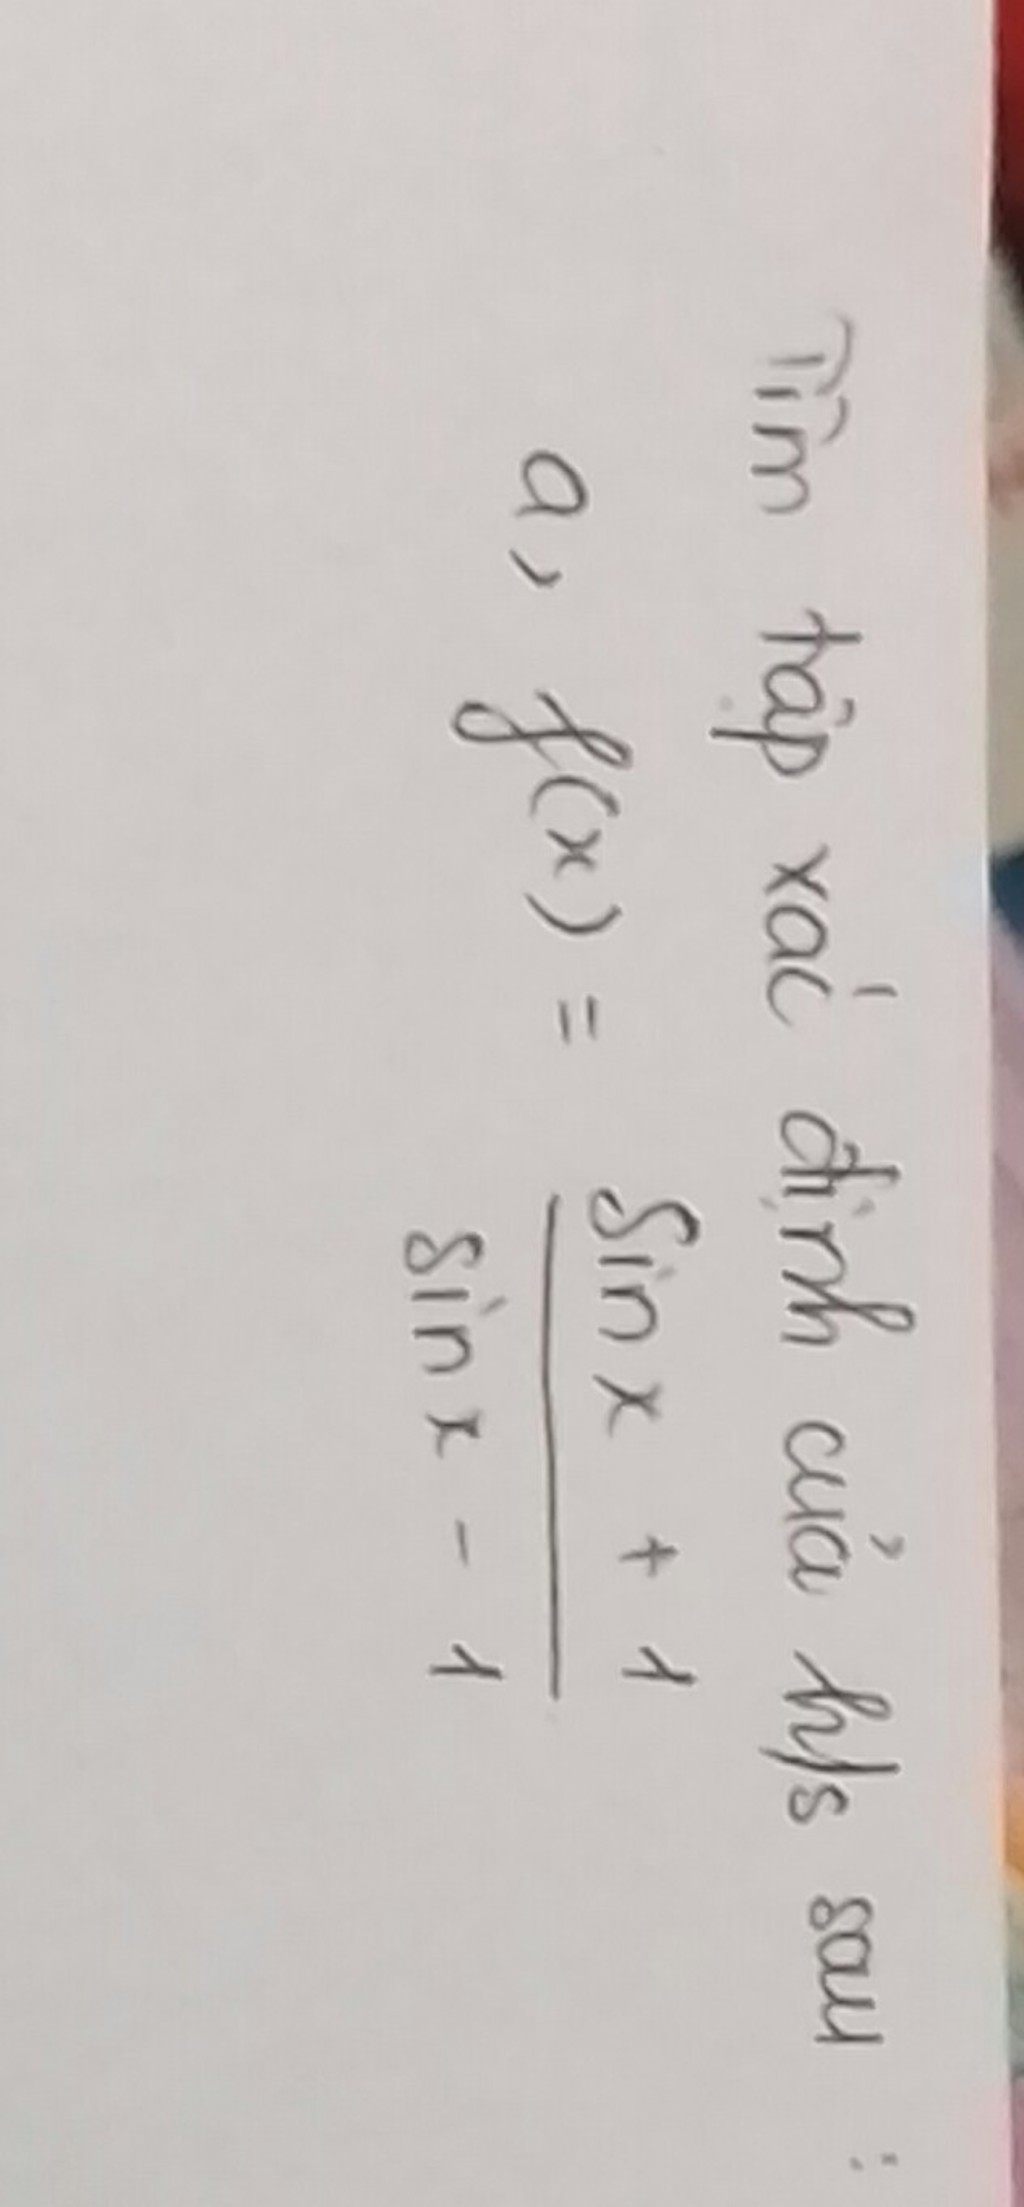 Tìm tập xác định của h/s sau :
a, f(x) = sin x + 1
sin x - 1